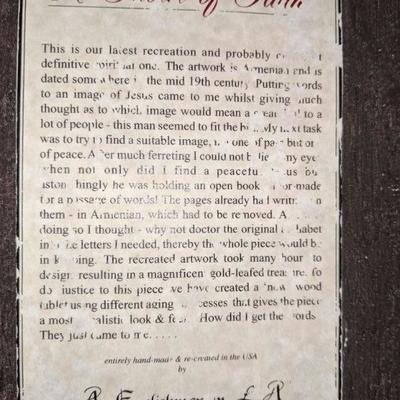 of Faith
This is our latest recreation and probably
definitive spiritual one. The artwork is Armenian and is
dated somewhere in the mid 19th century. Putting words
to an image of Jesus came to me whilst giving much
thought as to which image would mean a great deal to a
lot of people - this man seemed to fit the bill. My next task
was to try to find a suitable image, not one of pain but one
of peace. After much ferreting I could not believe my eyes
when not only did I find a peaceful Jesus but
astonishingly he was holding an open book tailor-made
for a passage of words! The pages already had writing on
them - in Armenian, which had to be removed.
doing so I thought - why not doctor the original alphabet
into the letters I needed, thereby the whole piece would be
in keeping. The recreated artwork took many hours to
design resulting in a magnificent gold-leafed treasure. To
do justice to this piece we have created a 'new' wood
tablet using different aging processes that gives the piece
a most realistic look & feel. How did I get the words
They just came to me. . . . .
entirely hand-made & re-created in the USA
by